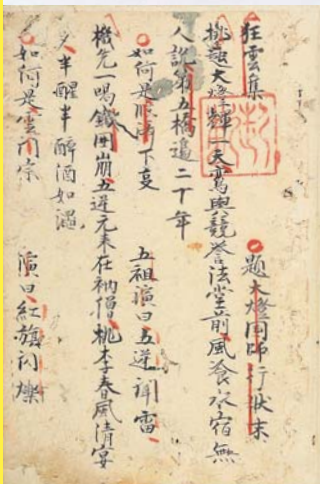 狂雲集　題大燈國師行状末
挑起大燈輝一天鸞輿競誉法堂前風飡水宿無
人記第五橋邊二十年
如何是臨済下事　五祖演曰五逆聞雷
機先一喝鐵囲崩五逆元来在衲僧桃李春風清宴
夕半醒半酔酒如澠
如何是雲門宗　演曰紅旗閃爍